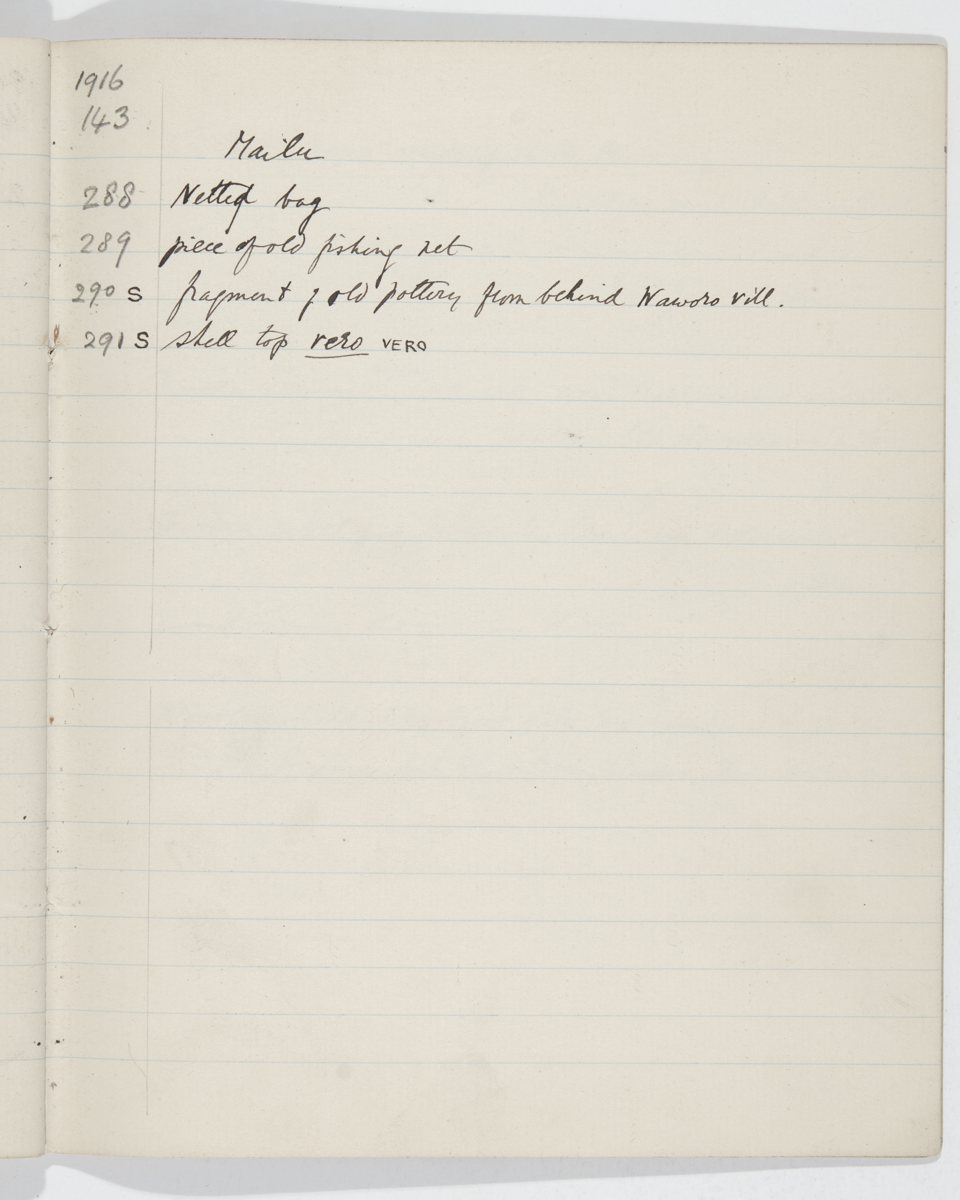 1916
143
Mailu
288 Netted bag
289 piece of old fishing net
290 S fragment of old pottery from behind Waworo vill.
291 S shell top vero VERO